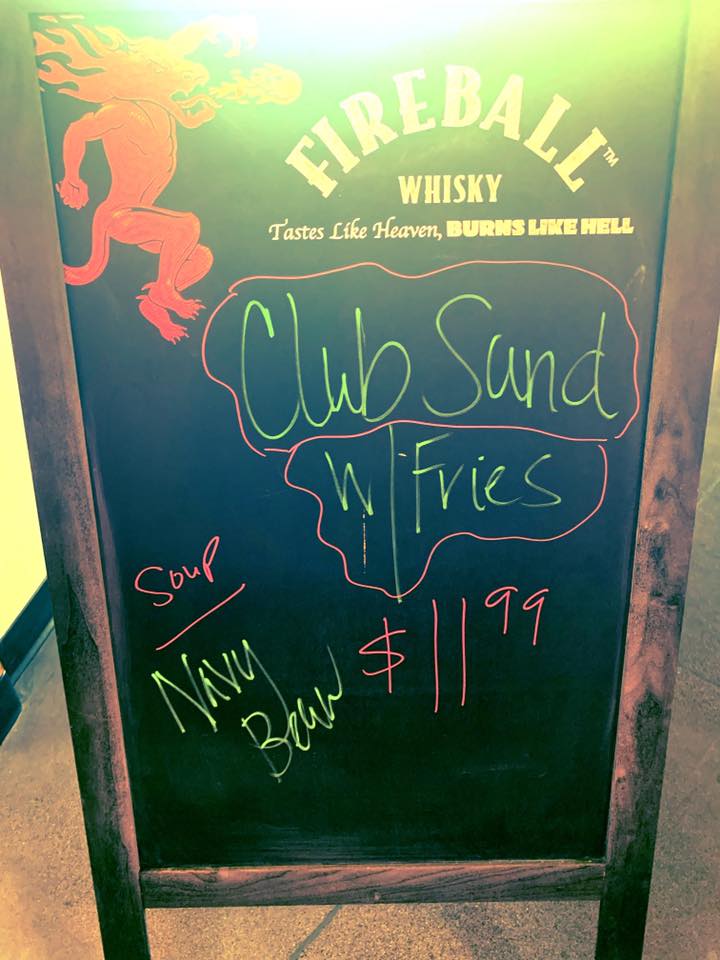 FIREBALL™
WHISKY
Tastes Like Heaven, BURNS LIKE HELL
Club Sand
w/Fries
Soup
Navy
Bean
$11 99